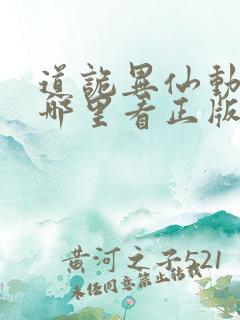 道诡异仙动
哪里看正版
黄河之子521
未经同意禁止转载